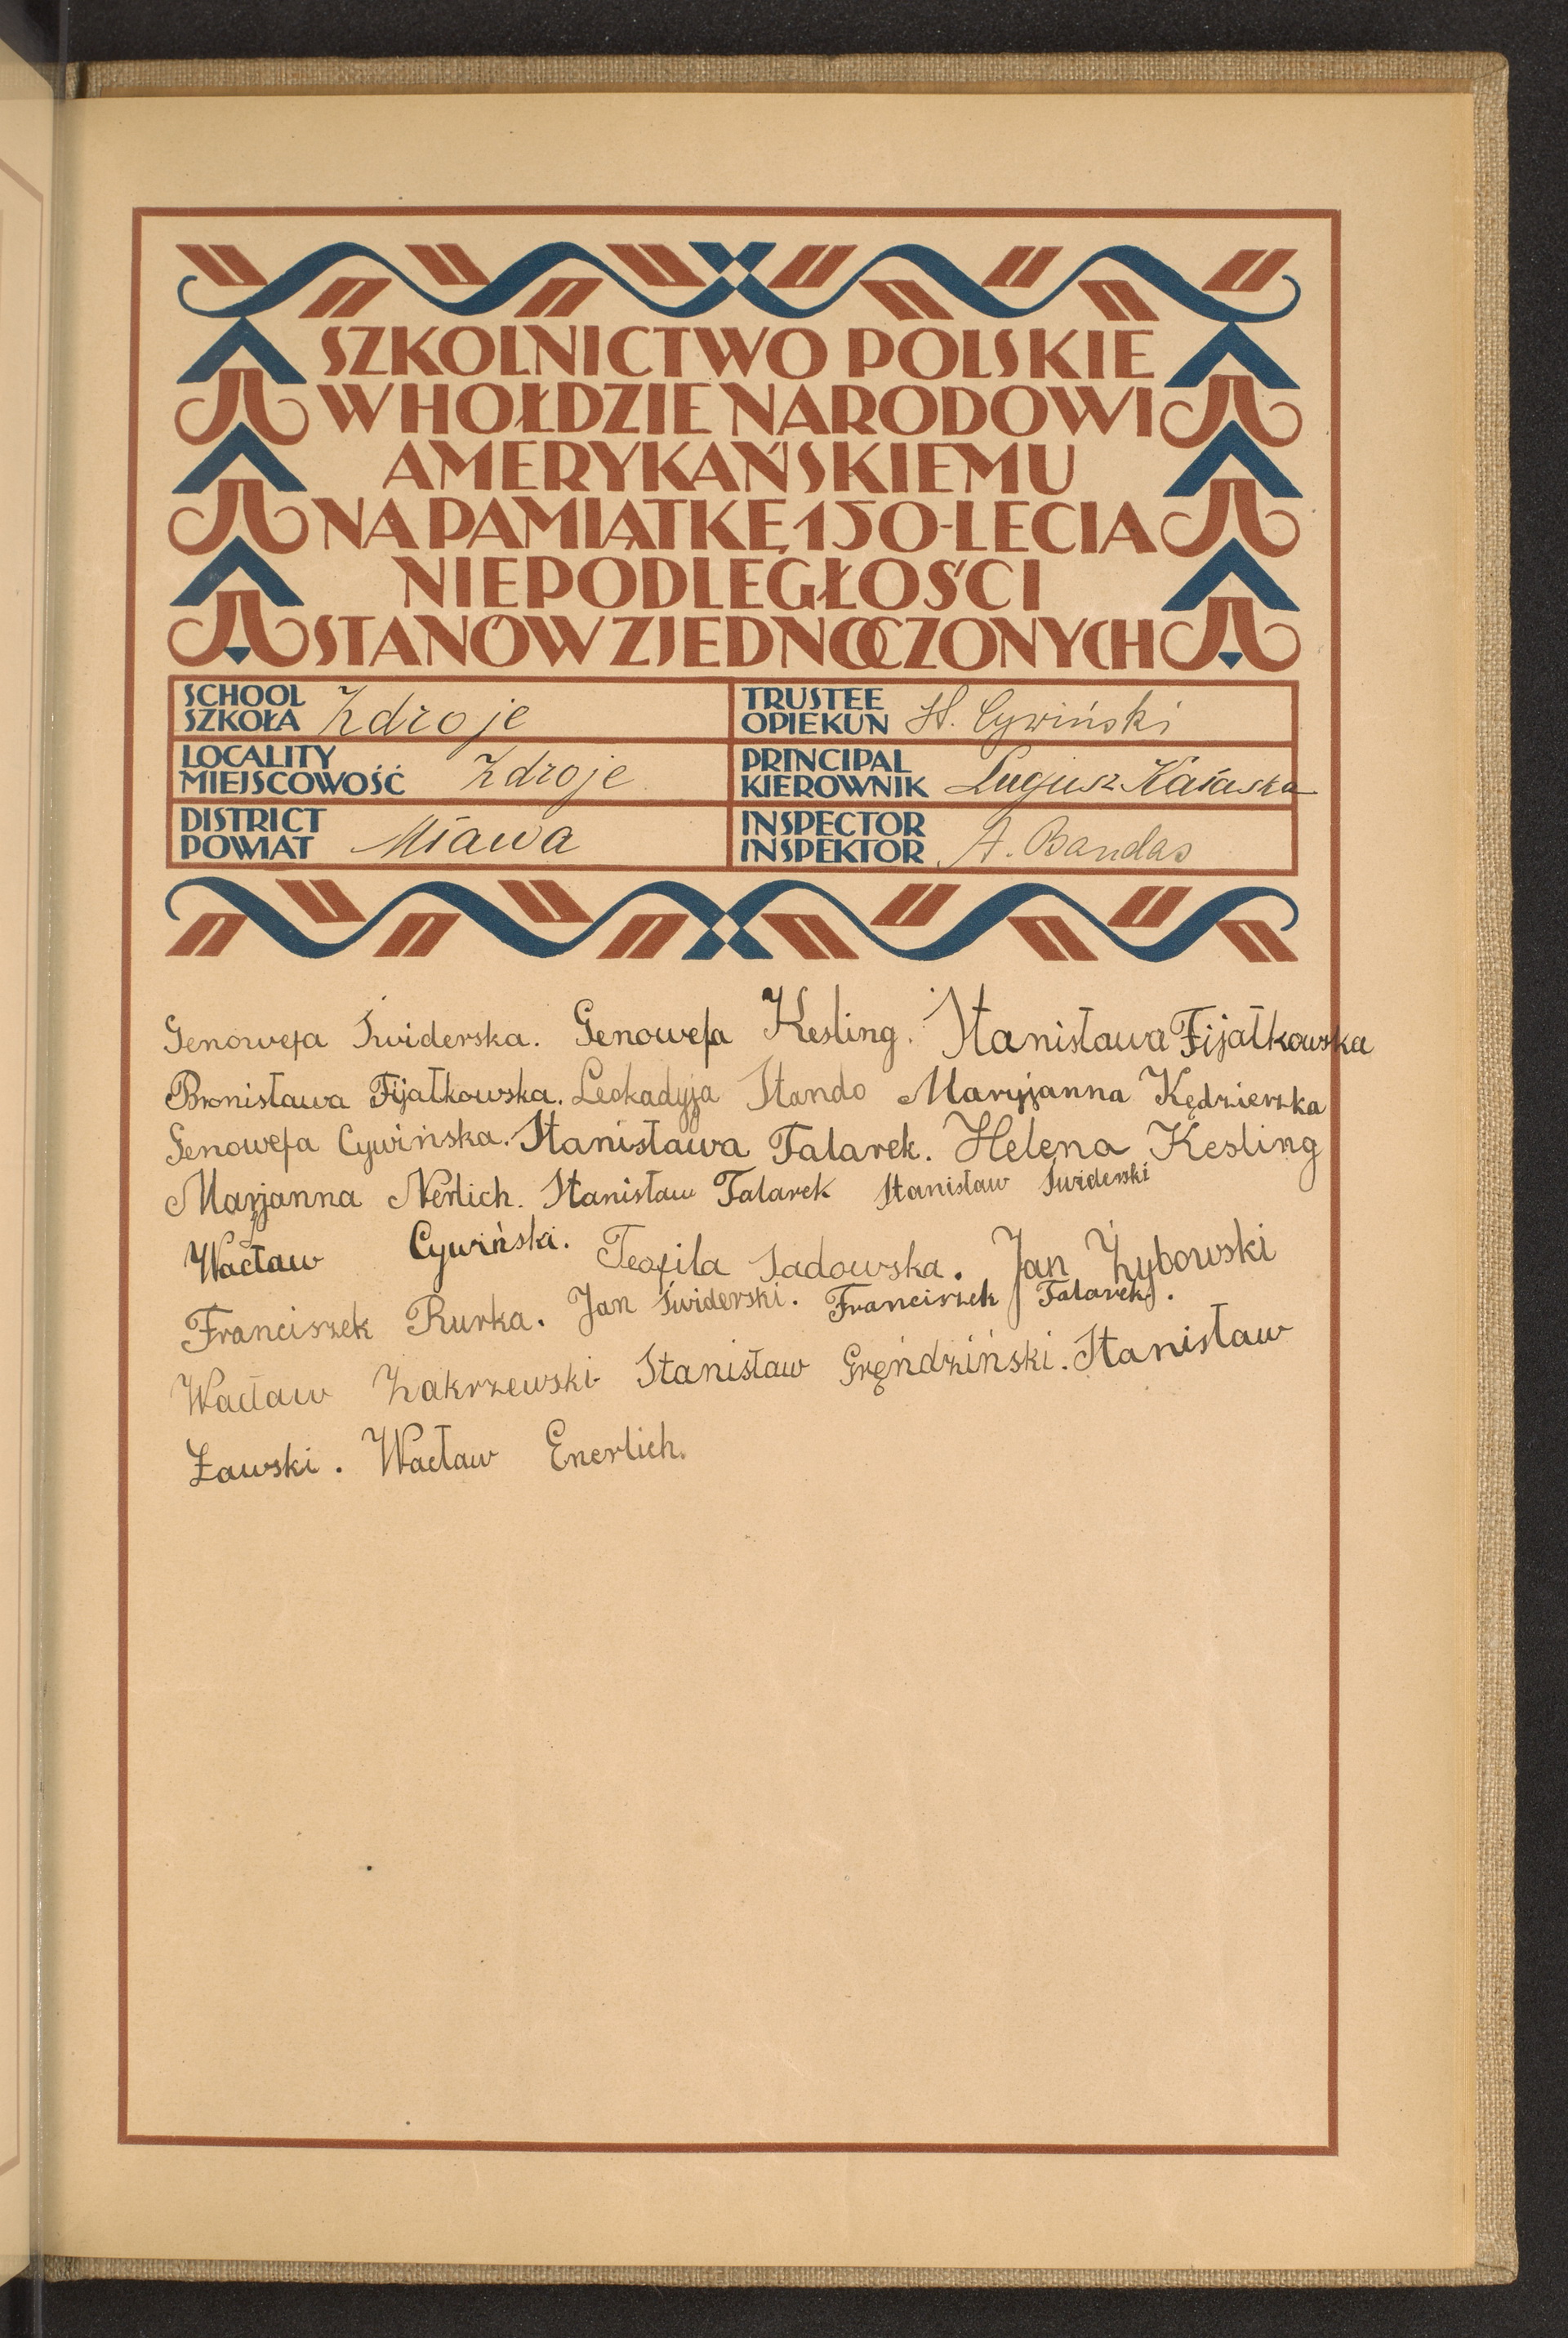 SZKOLNICTWO POLSKIE
W HOŁDZIE NARODOWI
AMERYKAŃSKIEMU
NA PAMIĄTKĘ 150-LECIA
NIEPODLEGŁOŚCI
STANÓW ZJEDNOCZONYCH
SCHOOL SZKOŁA Zdroje
TRUSTEE OPIEKUN H. Cywiński
LOCALITY MIEJSCOWOŚĆ Zdroje
PRINCIPAL KIEROWNIK Kałuska
DISTRICT POWIAT Mława
INSPECTOR INSPEKTOR A. Bandas
Genowefa Świderska. Genowefa Kesling. Stanisława Fijałkowska
Bronisława Fijałkowska. Leokadyja Stando Maryjanna Kędzierska
Genowefa Cywińska. Stanisława Talarek. Helena Kesling
Marjanna Nerlich. Stanisław Talarek Stanisław Świderski
Wacław Cywiński. Teofila Sadowska. Jan Żybowski
Franciszek Rurka. Jan Świderski. Franciszek Talarek.
Wacław Zakrzewski Stanisław Gręńdziński. Stanisław
Żawski. Wacław Enerlich.